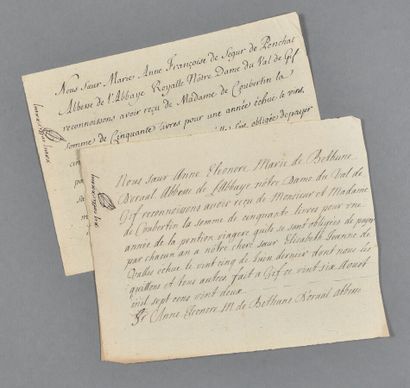 Nous Sœur Marie Anne Françoise de Segur de Ponchat
Abbesse de l'Abbaye Royalle Nôtre Dame du Val de Gif
reconnoissons avoir reçu de Madame de Coubertin la
somme de Cinquante livres pour une année échue le vint
obligée de payer
Nous sœur Anne Eleonore Marie de Bethune
Dorual Abbesse de L'abbaye nôtre Dame du Val de
Gif reconnoissons avoir reçu de Monsieur et Madame
de Coubertin la somme de cinquante livres pour une
année de la pention viagere quils se sont obligéz de payer
par chacun an a nôtre chere sœur Elizabeth Jeanne de
echue le vint cinq de Juin dernier dont nous les
quittons et tous autres. fait a Gif ce vint six
mil sept cens vint deux
Sr Anne Eleonore M de Bethune Dorual abbesse